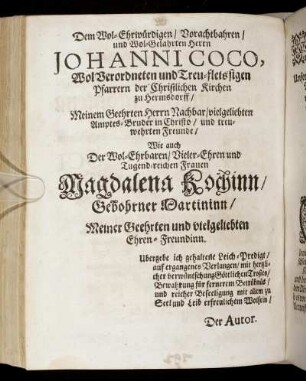 Dem Wol-Ehrwürdigen/ Vorachtbahren/
und Wol-Gelahrten Herrn
JOHANNI COCO,
Wol Verordneten und Treu-fleissigen
Pfarrern der Christlichen Kirchen
zu Hermsdorff/
Meinem Geehrten Herrn Nachbar/ vielgeliebten
Amptes-Bruder in Christo/ und treu-
wehrten Freunde/
Wie auch
Der Wol-Ehrbaren/ Vieler-Ehren und
Tugend-reichen Frauen
Magdalena Kochinn/
Gebohrner Martininn/
Meiner Geehrten und vielgeliebten
Ehren-Freundinn.
Ubergebe ich gehaltene Leich-Predigt/
auf ergangenes Verlangen/ mit hertzli-
cher Göttlichen Trostes/
Bewahrung für fernerem Betrübnüs/
und reicher Beseeligung mit allem zu
Seel und Leib erfreulichem Wolsein/
Der Autor.